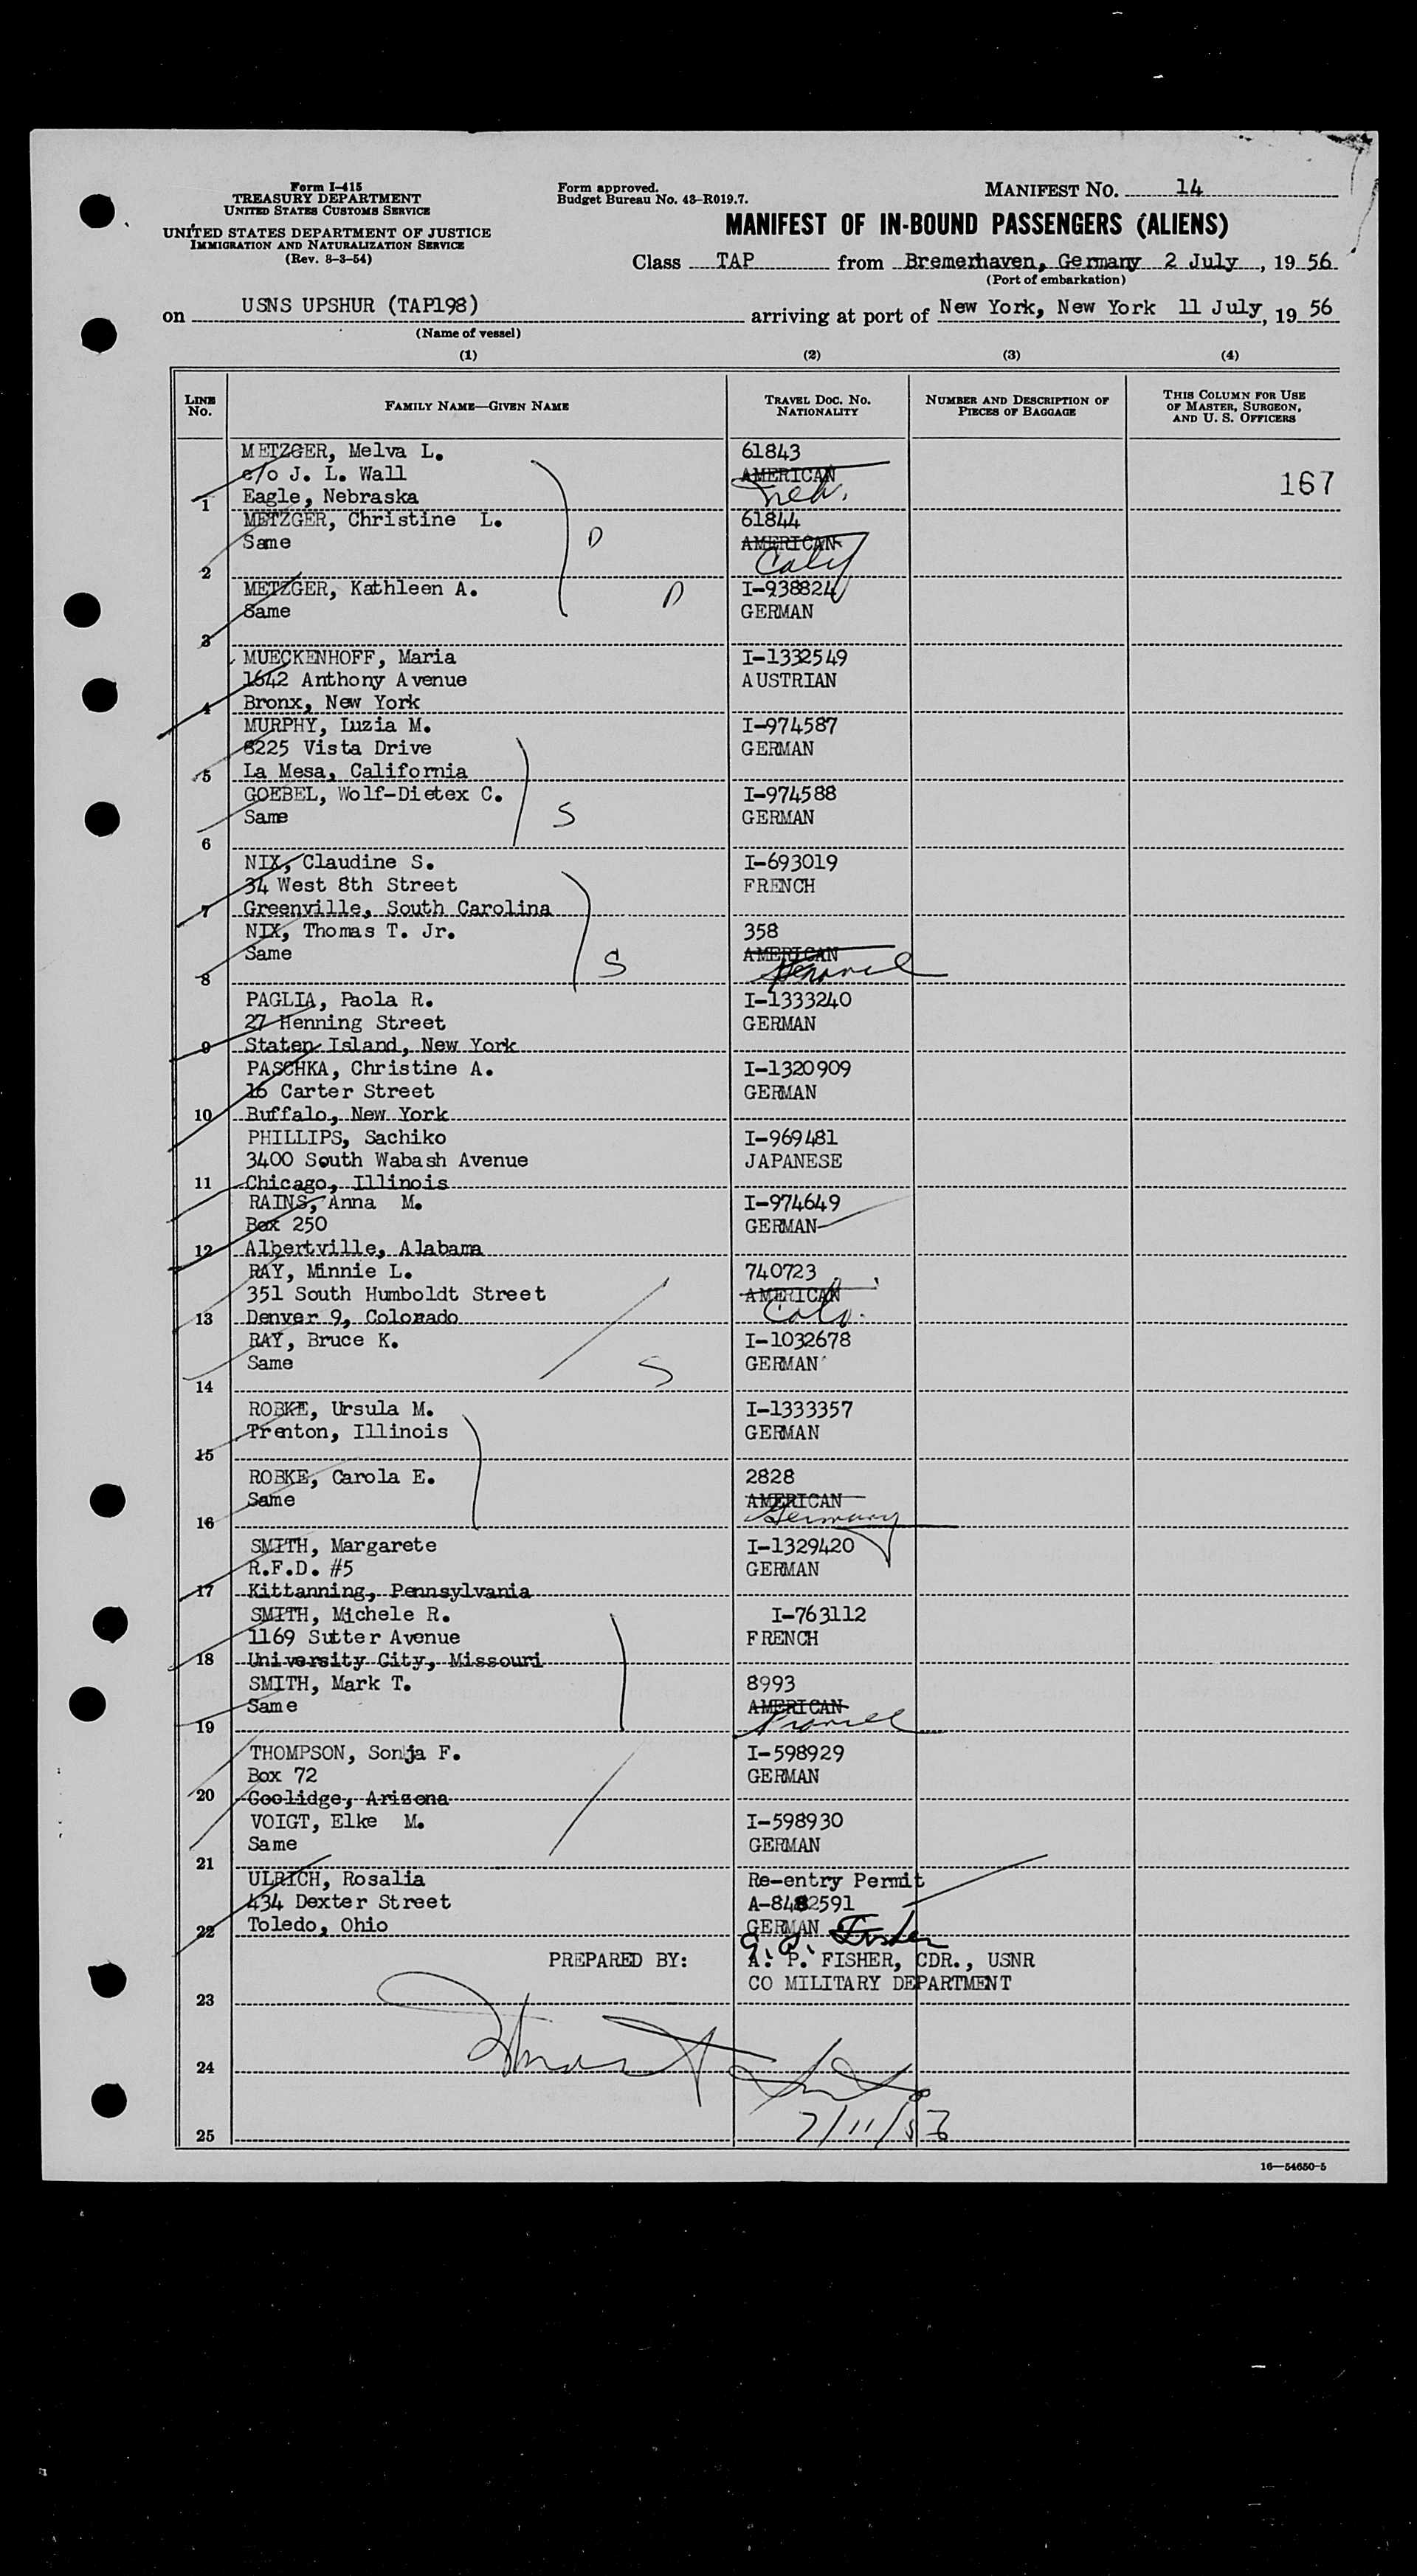 Form I-415
TREASURY DEPARTMENT
UNITED STATES CUSTOMS SERVICE
UNITED STATES DEPARTMENT OF JUSTICE
IMMIGRATION AND NATURALIZATION SERVICE
(Rev. 8-3-54)
Form approved.
Budget Bureau No. 43-R019.7.
MANIFEST NO. 14
MANIFEST OF IN-BOUND PASSENGERS (ALIENS)
Class TAP from Bremerhaven, Germany 2 July, 19 56
(Port of embarkation)
on USNS UPSHUR (TAP198) arriving at port of New York, New York 11 July, 19 56
(Name of vessel)
(1) (2) (3) (4)
LINE NO. FAMILY NAME—GIVEN NAME TRAVEL DOC. NO. NATIONALITY NUMBER AND DESCRIPTION OF PIECES OF BAGGAGE THIS COLUMN FOR USE OF MASTER, SURGEON, AND U. S. OFFICERS
METZGER, Melva L. 61843
c/o J. L. Wall AMERICAN 167
1 Eagle, Nebraska Neb.
METZGER, Christine L. 61844
Same D AMERICAN
2 Calif
METZGER, Kathleen A. D I-938824
Same GERMAN
3
MUECKENHOFF, Maria I-1332549
1642 Anthony Avenue AUSTRIAN
4 Bronx, New York
MURPHY, Luzia M. I-974587
8225 Vista Drive GERMAN
5 La Mesa, California
GOEBEL, Wolf-Dietex C. I-974588
Same S GERMAN
6
NIX, Claudine S. I-693019
34 West 8th Street FRENCH
7 Greenville, South Carolina
NIX, Thomas T. Jr. 358
Same S AMERICAN
8
PAGLIA, Paola R. I-1333240
27 Henning Street GERMAN
9 Staten Island, New York
PASCHKA, Christine A. I-1320909
16 Carter Street GERMAN
10 Buffalo, New York
PHILLIPS, Sachiko I-969481
3400 South Wabash Avenue JAPANESE
11 Chicago, Illinois
RAINS, Anna M. I-974649
Box 250 GERMAN
12 Albertville, Alabama
RAY, Minnie L. 740723
351 South Humboldt Street AMERICAN
13 Denver 9, Colorado Colo.
RAY, Bruce K. I-1032678
Same S GERMAN
14
ROBKE, Ursula M. I-1333357
Trenton, Illinois GERMAN
15
ROBKE, Carola E. 2828
Same AMERICAN
16 Germany
SMITH, Margarete I-1329420
R.F.D. #5 GERMAN
17 Kittanning, Pennsylvania
SMITH, Michele R. I-763112
1169 Sutter Avenue FRENCH
18 University City, Missouri
SMITH, Mark T. 8993
Same AMERICAN
19 France
THOMPSON, Sonja F. I-598929
Box 72 GERMAN
20 Coolidge, Arizona
VOIGT, Elke M. I-598930
Same GERMAN
21
ULRICH, Rosalia Re-entry Permit
434 Dexter Street A-8482591
22 Toledo, Ohio GERMAN
PREPARED BY: A. P. FISHER, CDR., USNR
CO MILITARY DEPARTMENT
23
24
7/11/56
25
16—54650-5